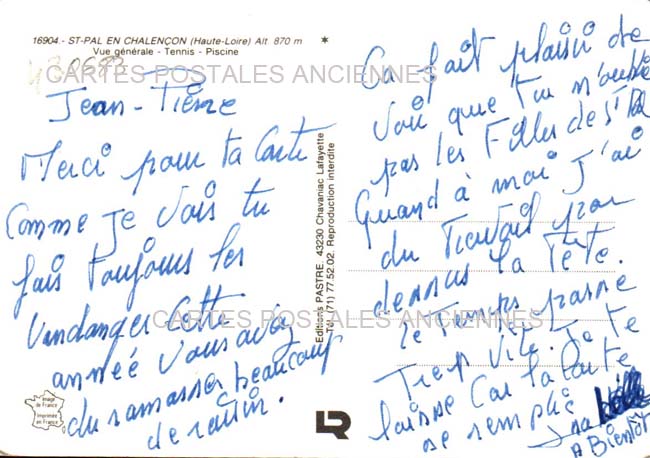 16904 - ST-PAL EN CHALENÇON (Haute-Loire) Alt 870 m
Vue générale - Tennis - Piscine
CARTES POSTALES ANCIENNES
Jean-Pierre
Merci pour ta Carte
Comme Je vois tu
fais toujours les
Vendanges Cette
année vous avez
du ramasser beaucoup
de raisin.
Image
de France
Imprimée
en France
Editions PASTRE, 43230 Chavaniac Lafayette
Tél. (71) 77.52.02. Reproduction interdite
LR
Ca fait plaisir de
voir que Tu n'oublie
pas les Filles de St Pal
Quand à moi J'ai
du Travail par
dessus la Tête.
le Temps passe
CARTES POSTALES ANCIENNES
Trop vite. Je te
laisse Car la Carte
se remplie
A Bientôt